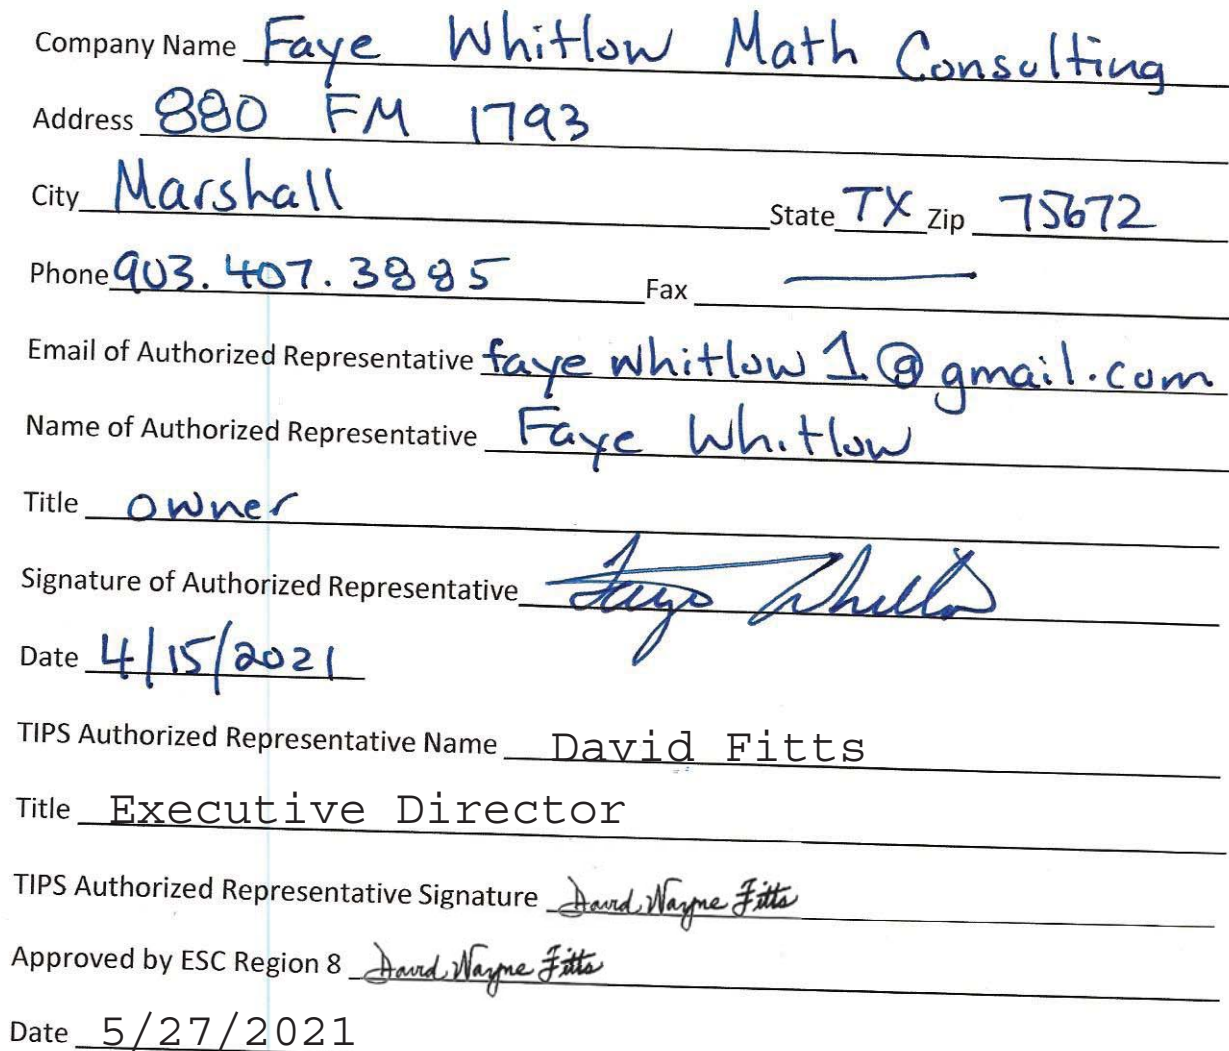 Company Name Faye Whitlow Math Consulting
Address 880 FM 1793
City Marshall State TX Zip 75672
Phone 903.407.3885 Fax —
Email of Authorized Representative faye whitlow 1@gmail.com
Name of Authorized Representative Faye Whitlow
Title owner
Signature of Authorized Representative Faye Whitlow
Date 4/15/2021
TIPS Authorized Representative Name David Fitts
Title Executive Director
TIPS Authorized Representative Signature David Wayne Fitts
Approved by ESC Region 8 David Wayne Fitts
Date 5/27/2021